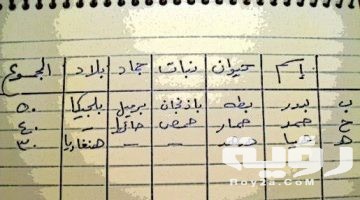 إسم حيوان نبات جماد بلاد المجموع
ب بدر بطه باذنجان برميل بلجيكا ٥٠
ح حمد حمار حمص حائط - ٤٠
ه - - هنغاريا ٣٠
رؤية
Roy2a.com